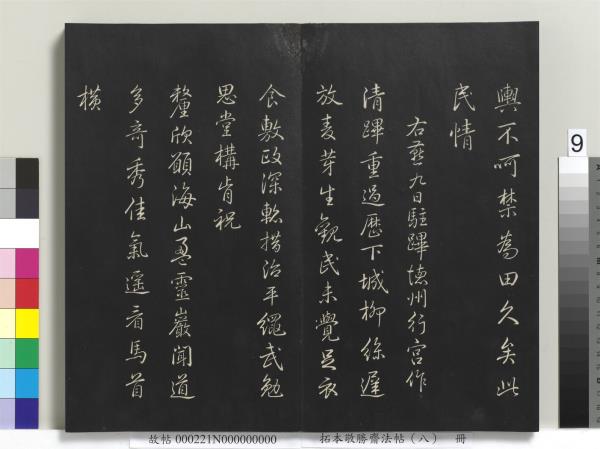 輿不呵禁為田久矣此
民情
右燕九日駐蹕德州行宮作
清蹕重過歷下城柳絲遲
放麦芽生觀民未覺足衣
食敷政深慙措治平繩武勉
思堂構肯祝
釐欣願海山盈靈巖聞道
多奇秀佳氣遥看馬首
橫
9
故帖 000221N000000000 拓本敬勝齋法帖（八） 冊